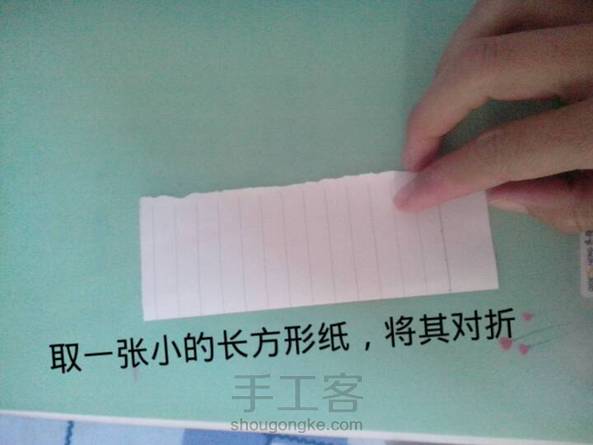 取一张小的长方形纸，将其对折
手工客
shougongke.com